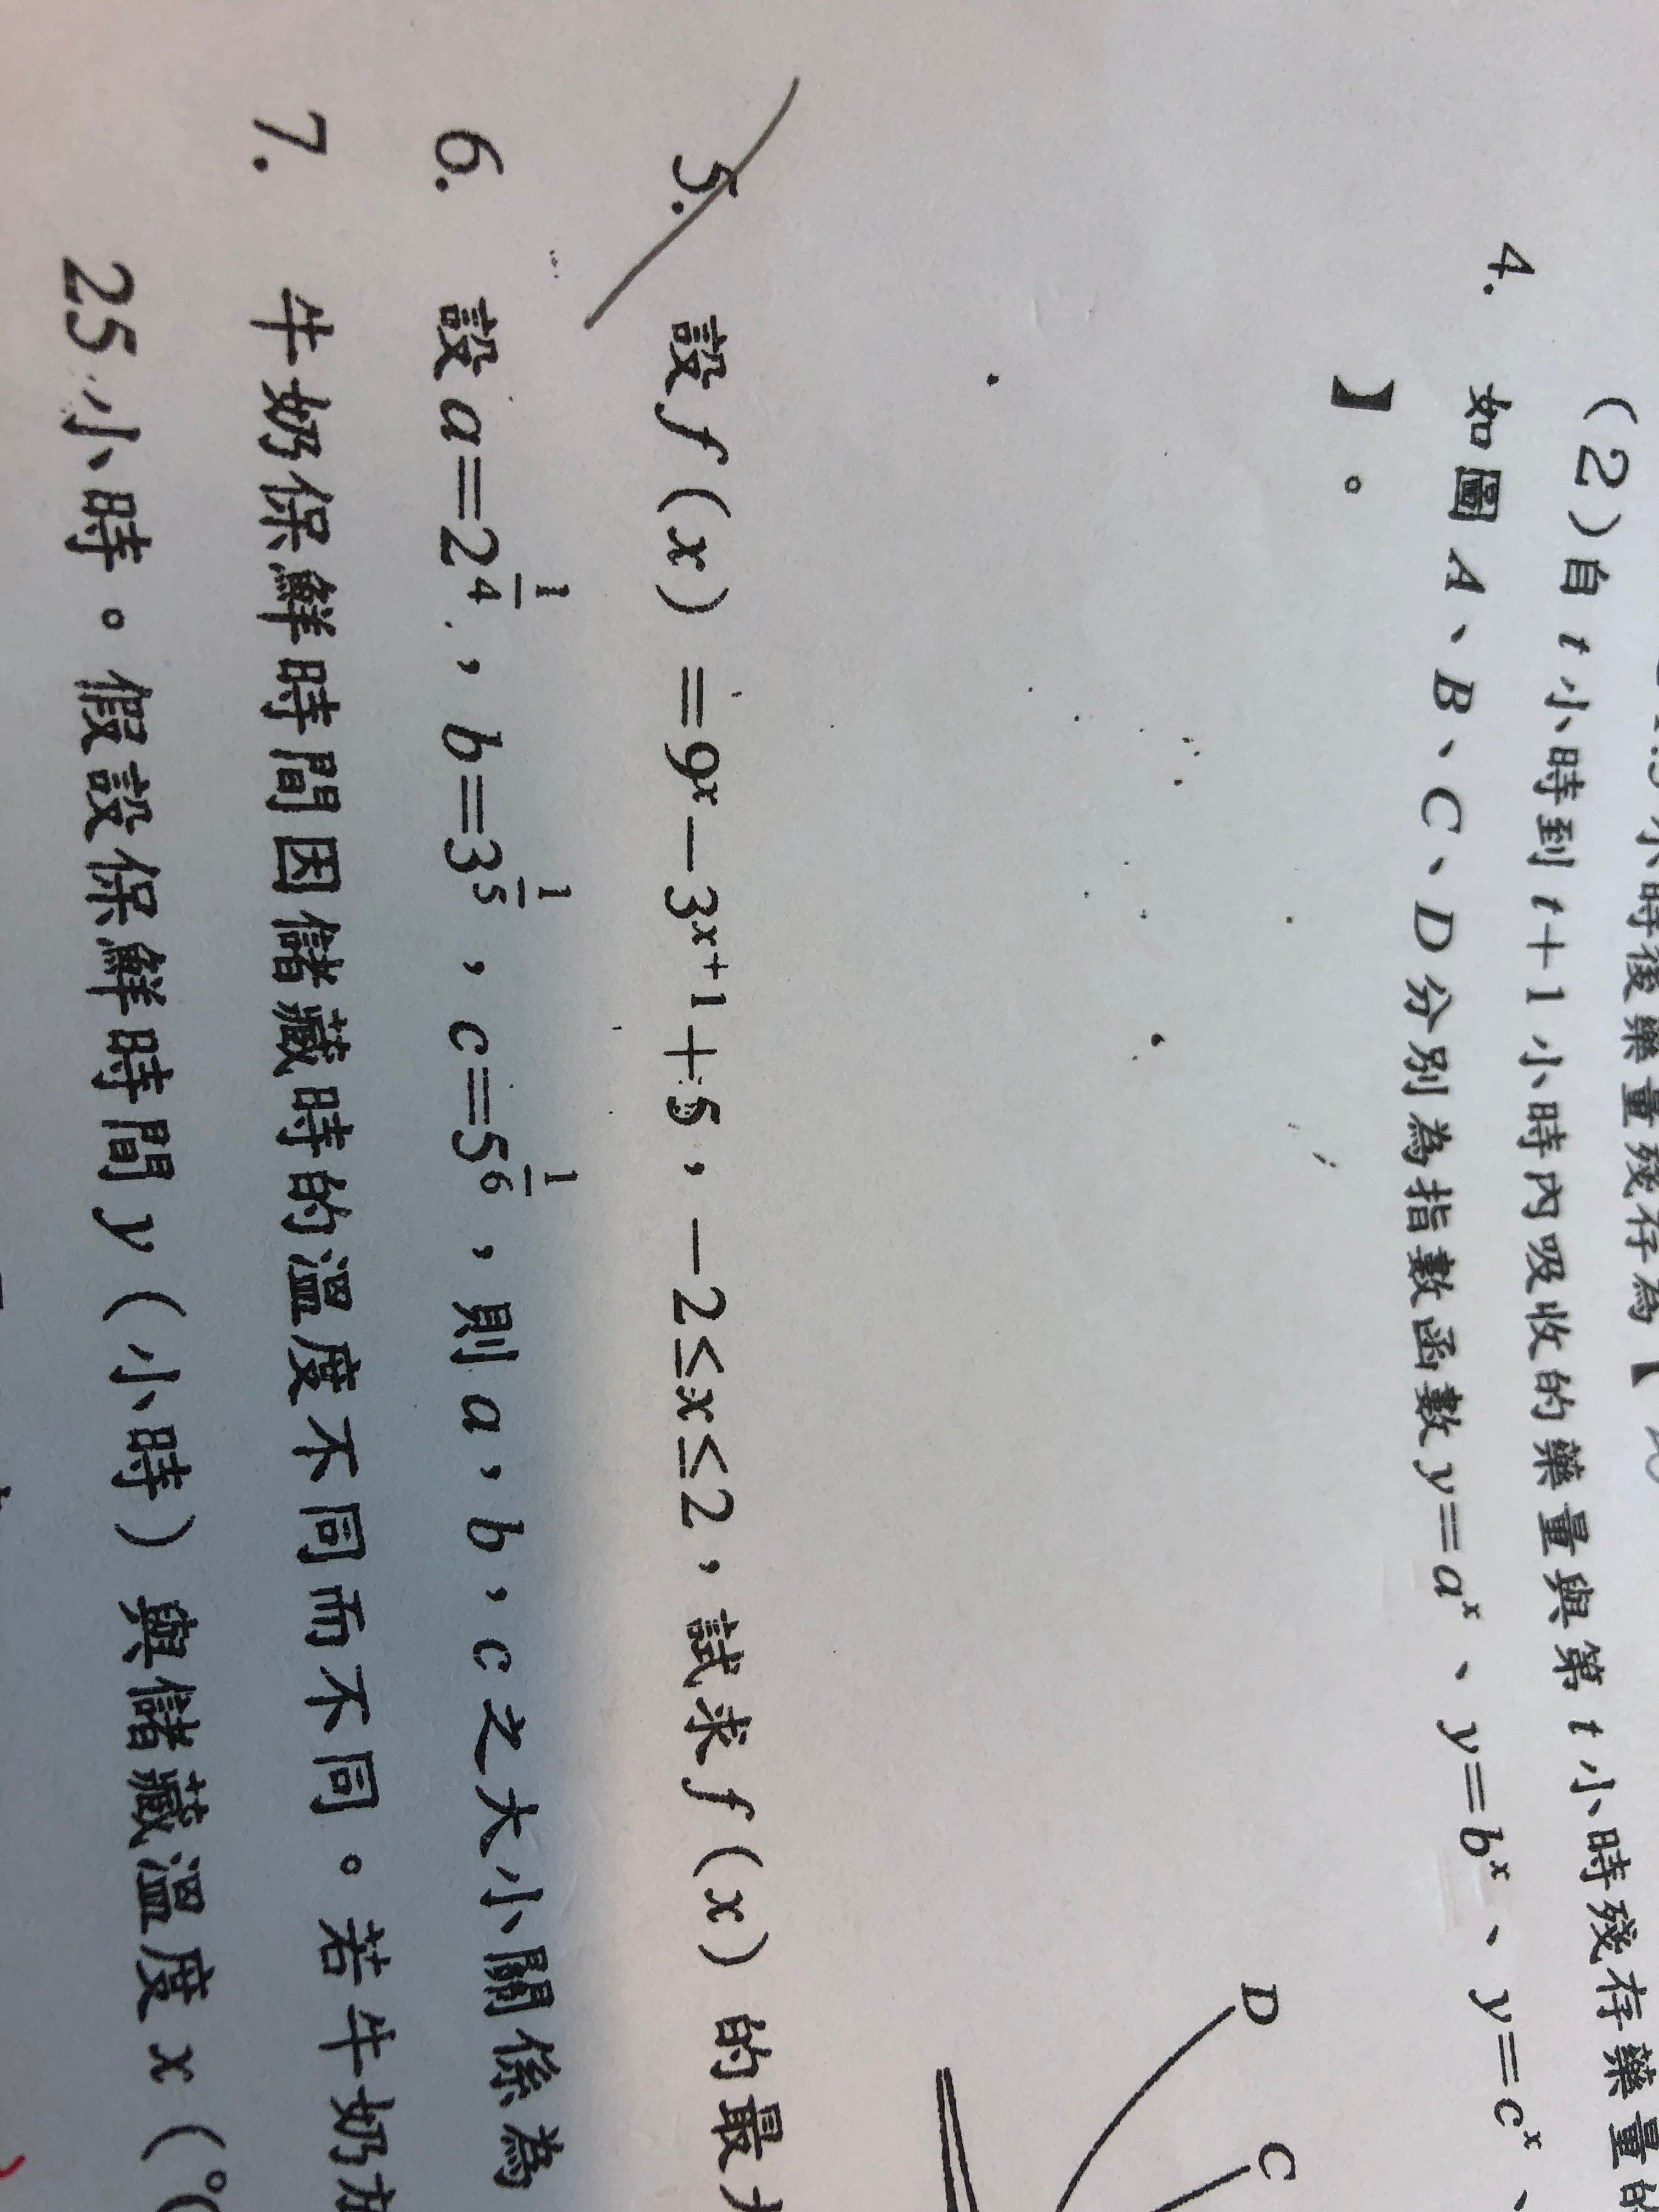 小時後藥量殘存為【
(2)自 t 小時到 t+1 小時內吸收的藥量與第 t 小時殘存藥量的
4. 如圖 A、B、C、D 分別為指數函數 y=aˣ、y=bˣ、y=cˣ、
】。
D
C
5. 設 f(x)=9ˣ−3ˣ⁺¹+5,−2≤x≤2,試求 f(x)的最
6. 設 a=2^{1/4},b=3^{1/5},c=5^{1/6},則 a,b,c 之大小關係為
7. 牛奶保鮮時間因儲藏時的溫度不同而不同。若牛奶
25 小時。假設保鮮時間 y(小時)與儲藏溫度 x(°